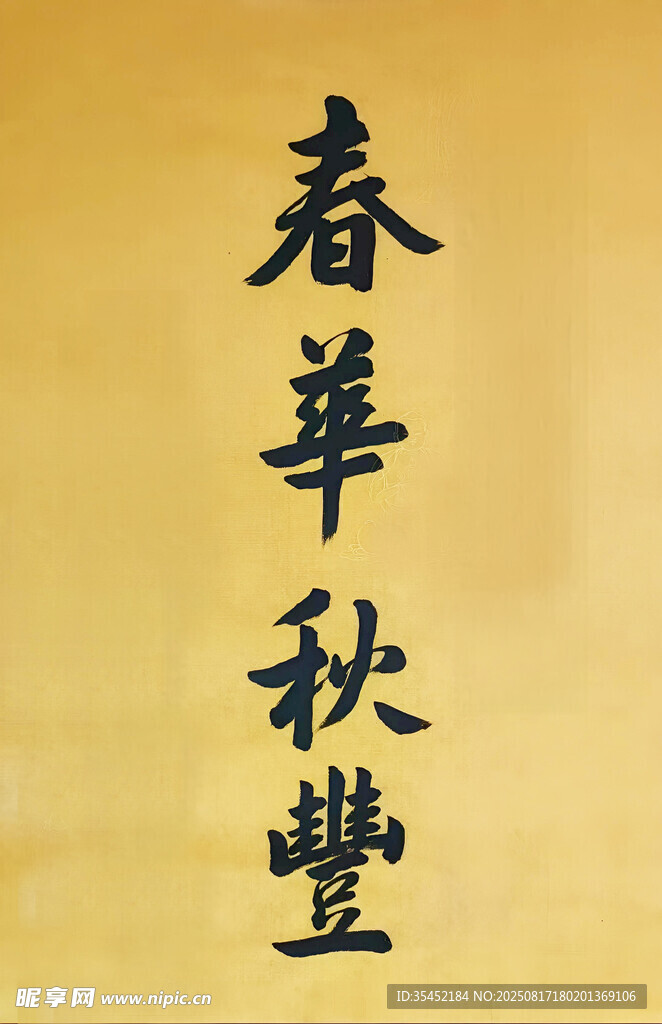 春華秋豐
昵享网 www.nipic.cn
ID:35452184 NO:20250817180201369106